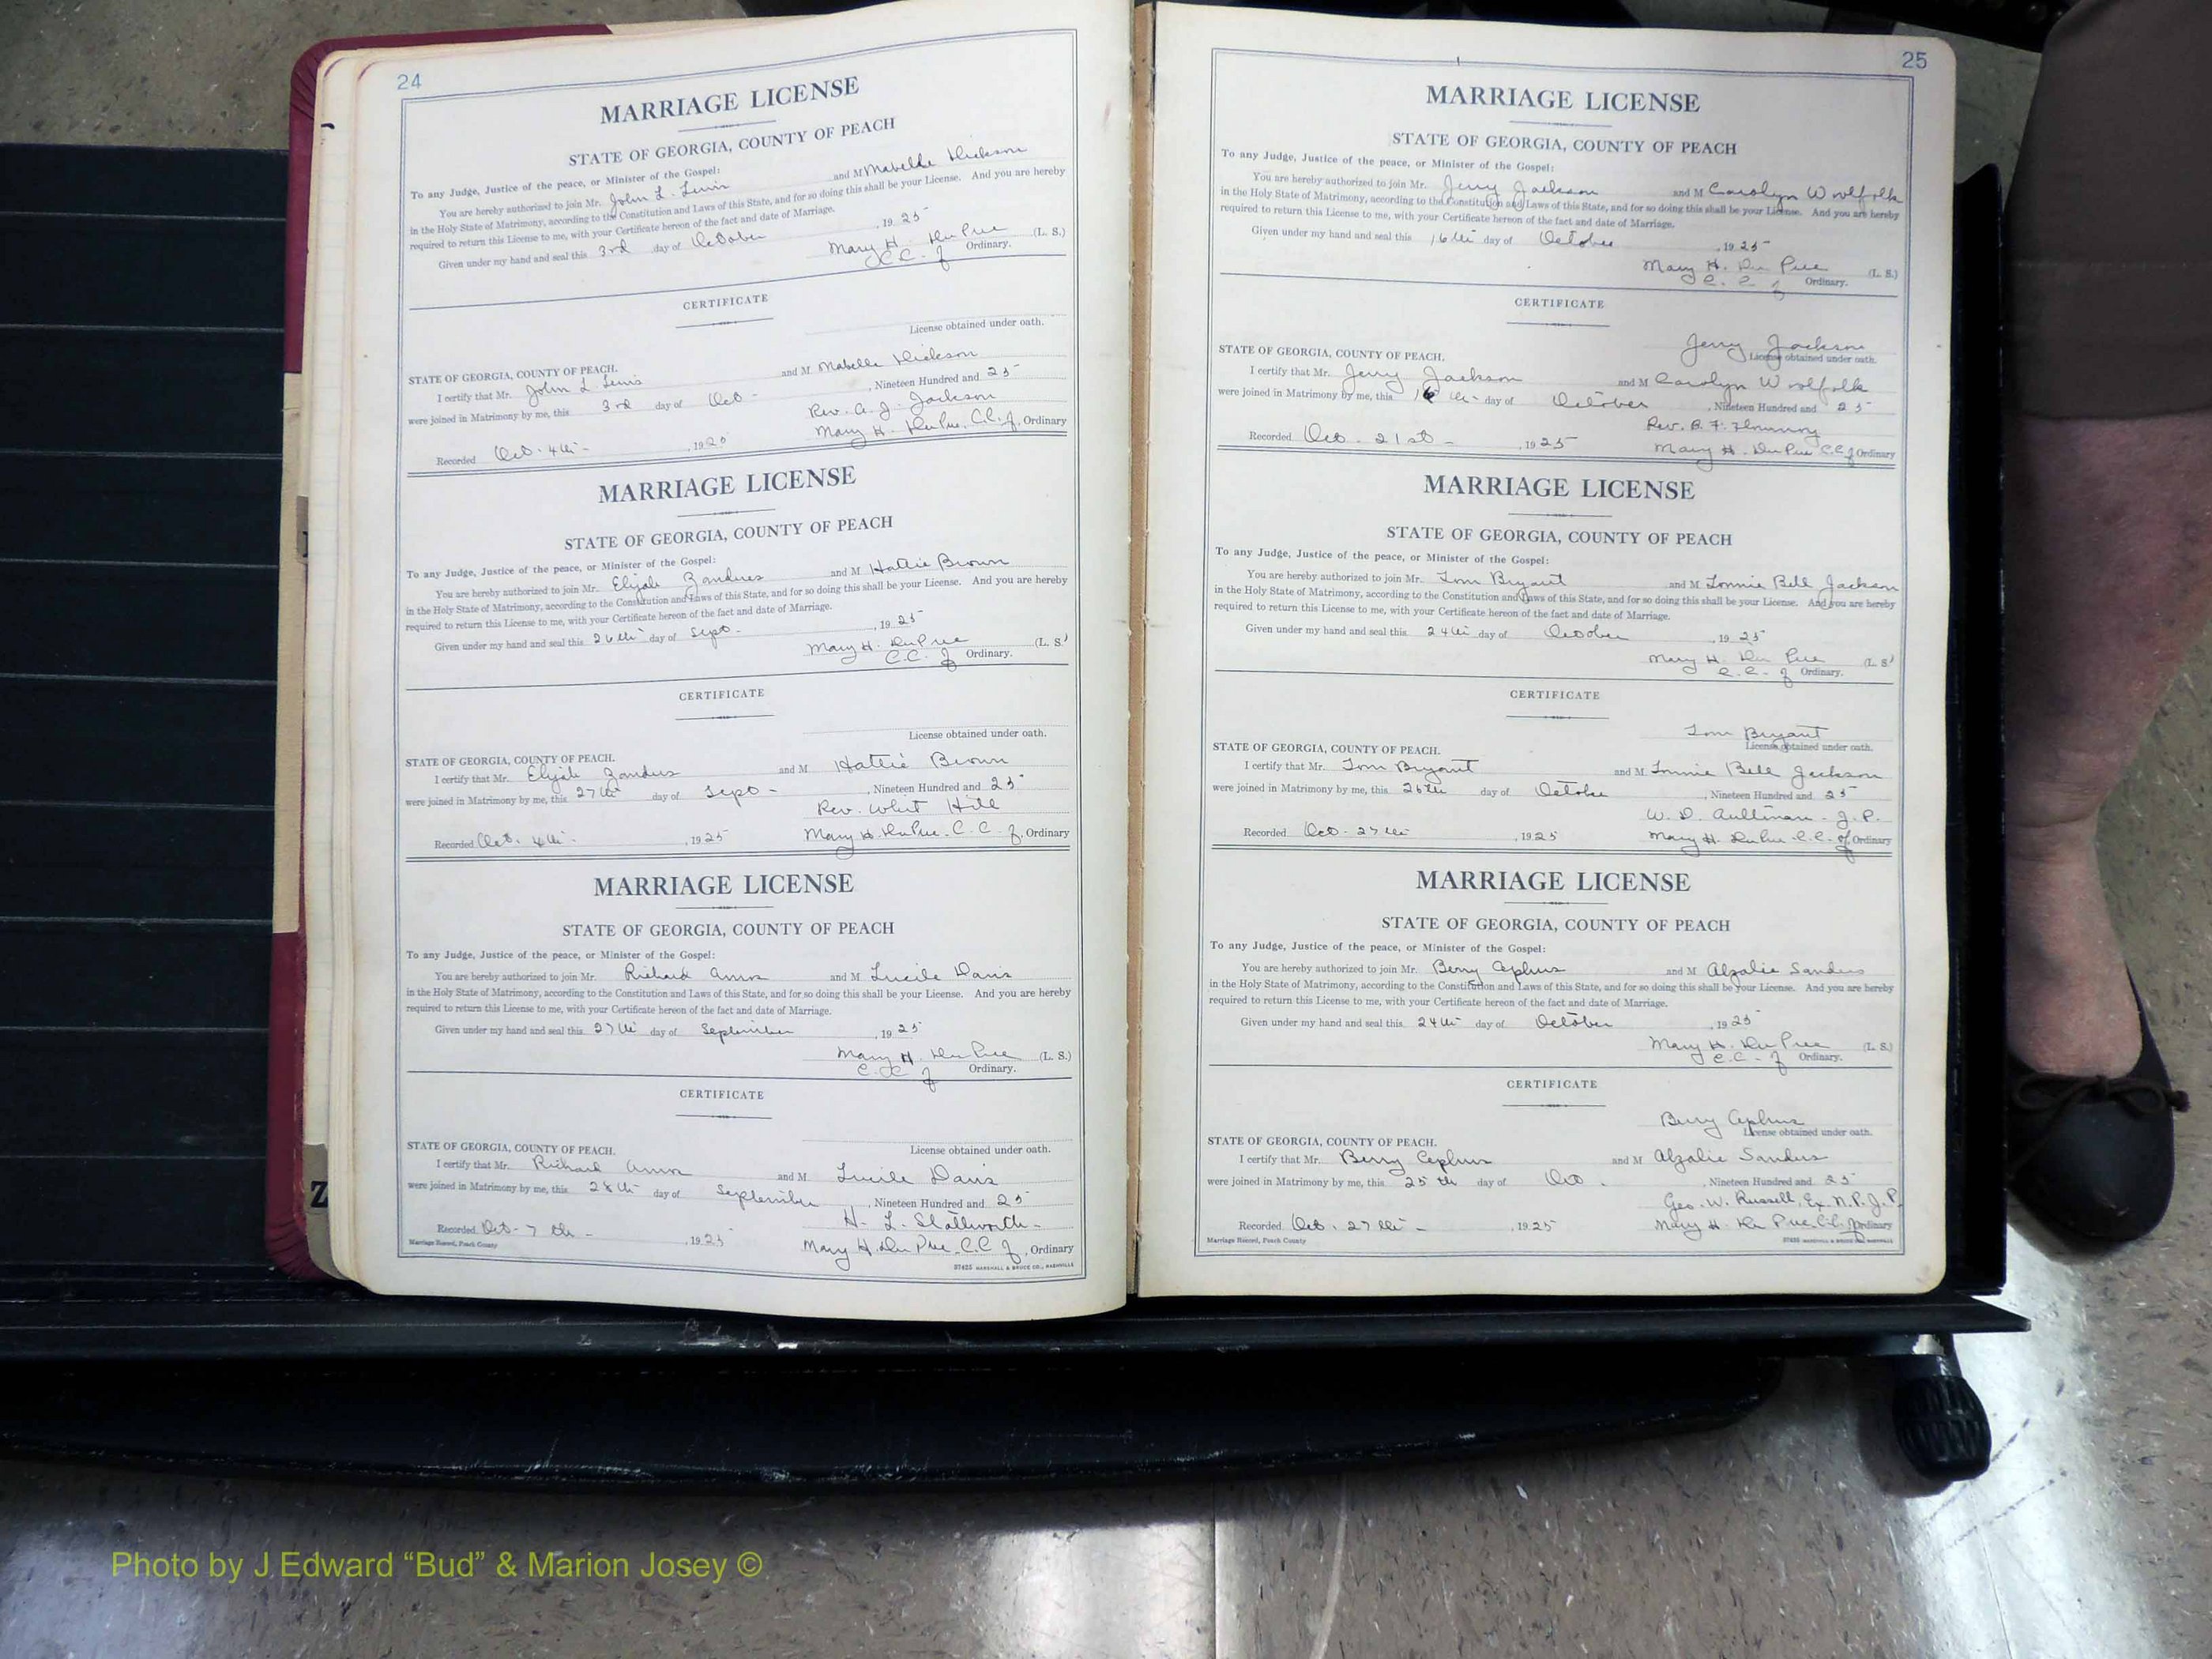 24
MARRIAGE LICENSE
STATE OF GEORGIA, COUNTY OF PEACH
To any Judge, Justice of the peace, or Minister of the Gospel:
You are hereby authorized to join Mr. John L. Lewis and M Mabelle Dickson
in the Holy State of Matrimony, according to the Constitution and Laws of this State, and for so doing this shall be your License. And you are hereby
required to return this License to me, with your Certificate hereon of the fact and date of Marriage.
Given under my hand and seal this 3rd day of October, 1925
Mary H. DuPree (L. S.)
C.C. of Ordinary.
CERTIFICATE
License obtained under oath.
STATE OF GEORGIA, COUNTY OF PEACH.
I certify that Mr. John L. Lewis and M Mabelle Dickson
were joined in Matrimony by me, this 3rd day of Oct -, Nineteen Hundred and 25
Rev. A. J. Jackson
Recorded Oct. 4th -, 1925 Mary H. DuPree, C.C. of, Ordinary
MARRIAGE LICENSE
STATE OF GEORGIA, COUNTY OF PEACH
To any Judge, Justice of the peace, or Minister of the Gospel:
You are hereby authorized to join Mr. Elijah Zanders and M Hattie Brown
in the Holy State of Matrimony, according to the Constitution and Laws of this State, and for so doing this shall be your License. And you are hereby
required to return this License to me, with your Certificate hereon of the fact and date of Marriage.
Given under my hand and seal this 26th day of Sept -, 1925
Mary H. DuPree (L. S.)
C.C. of Ordinary.
CERTIFICATE
License obtained under oath.
STATE OF GEORGIA, COUNTY OF PEACH.
I certify that Mr. Elijah Zanders and M Hattie Brown
were joined in Matrimony by me, this 27th day of Sept -, Nineteen Hundred and 25
Rev. Whit Hill
Recorded Oct. 4th -, 1925 Mary H. DuPree - C.C. of, Ordinary
MARRIAGE LICENSE
STATE OF GEORGIA, COUNTY OF PEACH
To any Judge, Justice of the peace, or Minister of the Gospel:
You are hereby authorized to join Mr. Richard Amos and M Lucile Davis
in the Holy State of Matrimony, according to the Constitution and Laws of this State, and for so doing this shall be your License. And you are hereby
required to return this License to me, with your Certificate hereon of the fact and date of Marriage.
Given under my hand and seal this 27th day of September, 1925
Mary H. DuPree (L. S.)
C.C. of Ordinary.
CERTIFICATE
License obtained under oath.
STATE OF GEORGIA, COUNTY OF PEACH.
I certify that Mr. Richard Amos and M Lucile Davis
were joined in Matrimony by me, this 28th day of September, Nineteen Hundred and 25
H. L. Stallworth -
Recorded Oct - 7th -, 1925 Mary H. DuPree, C.C of, Ordinary
Marriage Record, Peach County
37625 MARSHALL & BRUCE CO., NASHVILLE
25
MARRIAGE LICENSE
STATE OF GEORGIA, COUNTY OF PEACH
To any Judge, Justice of the peace, or Minister of the Gospel:
You are hereby authorized to join Mr. Jerry Jackson and M Carolyn Woolfolk
in the Holy State of Matrimony, according to the Constitution and Laws of this State, and for so doing this shall be your License. And you are hereby
required to return this License to me, with your Certificate hereon of the fact and date of Marriage.
Given under my hand and seal this 16th day of October, 1925
Mary H. Du Pree (L. S.)
C. C. of Ordinary.
CERTIFICATE
Jerry Jackson
License obtained under oath.
STATE OF GEORGIA, COUNTY OF PEACH.
I certify that Mr. Jerry Jackson and M Carolyn Woolfolk
were joined in Matrimony by me, this 16th - day of October, Nineteen Hundred and 25
Rev. B. F.
Recorded Oct. 21st -, 1925 Mary H. DuPree C.C. of Ordinary
MARRIAGE LICENSE
STATE OF GEORGIA, COUNTY OF PEACH
To any Judge, Justice of the peace, or Minister of the Gospel:
You are hereby authorized to join Mr. Tom Bryant and M Lonnie Bell Jackson
in the Holy State of Matrimony, according to the Constitution and Laws of this State, and for so doing this shall be your License. And you are hereby
required to return this License to me, with your Certificate hereon of the fact and date of Marriage.
Given under my hand and seal this 24th day of October, 1925
Mary H. Du Pree (L. S.)
C. C. of Ordinary.
CERTIFICATE
Tom Bryant
License obtained under oath.
STATE OF GEORGIA, COUNTY OF PEACH.
I certify that Mr. Tom Bryant and M Lonnie Bell Jackson
were joined in Matrimony by me, this 26th day of October, Nineteen Hundred and 25
W. D. Aultman - J. P.
Recorded Oct - 27th, 1925 Mary H. DuPree - C.C. of, Ordinary
MARRIAGE LICENSE
STATE OF GEORGIA, COUNTY OF PEACH
To any Judge, Justice of the peace, or Minister of the Gospel:
You are hereby authorized to join Mr. Berry Cephus and M Alzalie Sanders
in the Holy State of Matrimony, according to the Constitution and Laws of this State, and for so doing this shall be your License. And you are hereby
required to return this License to me, with your Certificate hereon of the fact and date of Marriage.
Given under my hand and seal this 24th day of October, 1925
Mary H. Du Pree (L. S.)
C.C. of Ordinary.
CERTIFICATE
Berry Cephus
License obtained under oath.
STATE OF GEORGIA, COUNTY OF PEACH.
I certify that Mr. Berry Cephus and M Alzalie Sanders
were joined in Matrimony by me, this 25th day of Oct ., Nineteen Hundred and 25
Geo. W. Russell, Ex. N.P.J.P.
Recorded Oct. 27th -, 1925 Mary H. Du Pree, C.C. of Ordinary
Marriage Record, Peach County
37625 MARSHALL & BRUCE CO., NASHVILLE
Z
Photo by J Edward “Bud” & Marion Josey ©